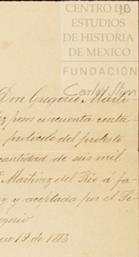 CENTRO DE
ESTUDIOS
DE HISTORIA
DE MEXICO
FUNDACIÓN
Carlos Slim
Don Gregorio Martí
pesos cincuenta centa
protocolo del protesto
cantidad de seis mil
Martinez del Rio á fa
y aceptada por el Se
19 de 1883